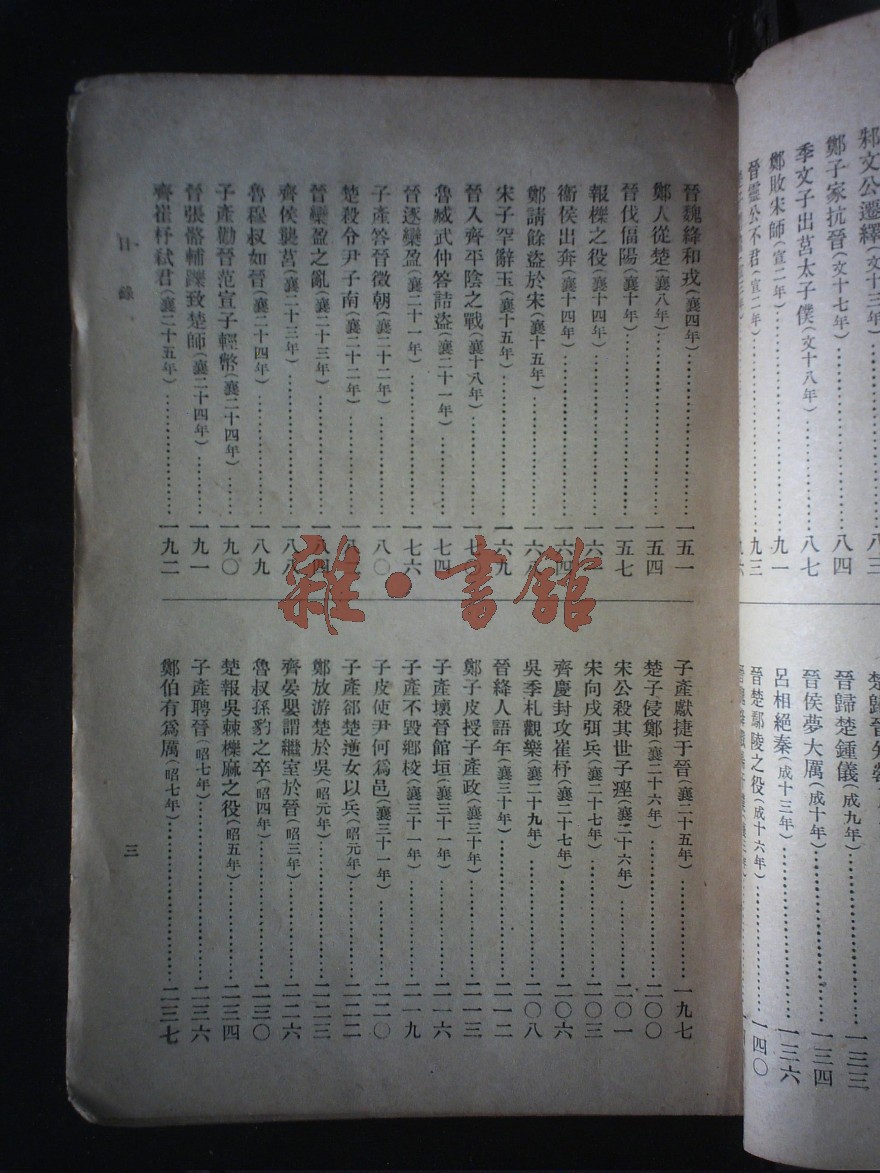 邾文公遷繹(文十三年)……八三
鄭子家抗晉(文十七年)……八四
季文子出莒太子僕(文十八年)……八七
鄭敗宋師(宣二年)……九一
晉靈公不君(宣二年)……九三
晉歸楚鍾儀(成九年)
晉侯夢大厲(成十年)……一三四
呂相絕秦(成十三年)……一三六
晉楚鄢陵之役(成十六年)……一四〇
晉魏絳和戎(襄四年)……一五一
鄭人從楚(襄八年)……一五四
晉伐偪陽(襄十年)……一五七
報櫟之役(襄十四年)
衞侯出奔(襄十四年)……一六四
鄭請餘盜於宋(襄十五年)……一六八
宋子罕辭玉(襄十五年)……一六九
晉入齊平陰之戰(襄十八年)……一七〇
魯臧武仲答詰盜(襄二十一年)……一七四
晉逐欒盈(襄二十一年)……一七六
子產答晉徵朝(襄二十二年)……一八〇
楚殺令尹子南(襄二十二年)
晉欒盈之亂(襄二十三年)……一八四
齊侯襲莒(襄二十三年)……一八八
魯穆叔如晉(襄二十四年)……一八九
子產勸晉范宣子輕幣(襄二十四年)……一九〇
晉張骼輔躒致楚師(襄二十四年)……一九一
齊崔杼弒君(襄二十五年)……一九二
子產獻捷于晉(襄二十五年)……一九七
楚子侵鄭(襄二十六年)……二〇〇
宋公殺其世子痤(襄二十六年)……二〇一
宋向戌弭兵(襄二十七年)……二〇三
齊慶封攻崔杼(襄二十七年)……二〇六
吳季札觀樂(襄二十九年)……二〇八
晉絳人語年(襄三十年)……二一二
鄭子皮授子產政(襄三十年)……二一三
子產壞晉館垣(襄三十一年)……二一六
子產不毀鄉校(襄三十一年)……二一九
子皮使尹何爲邑(襄三十一年)……二二〇
子產卻楚逆女以兵(昭元年)……二二二
鄭放游楚於吳(昭元年)……二二三
齊晏嬰謂繼室於晉(昭三年)……二二六
魯叔孫豹之卒(昭四年)……二三〇
楚報吳棘櫟麻之役(昭五年)……二三四
子產聘晉(昭七年)……二三六
鄭伯有爲厲(昭七年)……二三七
目錄
三
雜·書館